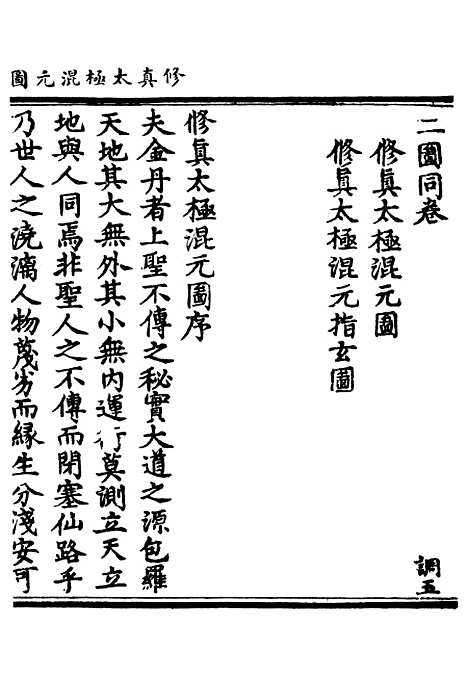 修真太極混元圖
二圖同卷
調五
修真太極混元圖
修真太極混元指玄圖
修真太極混元圖序
夫金丹者上聖不傳之秘實大道之源包羅
天地其大無外其小無内運行莫測立天立
地與人同焉非聖人之不傳而閉塞仙路乎
乃世人之澆漓人物蔑劣而緣生分淺安可